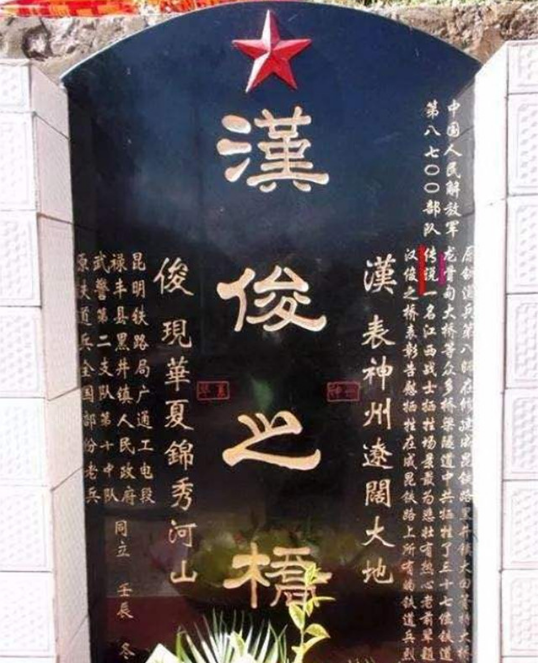 中国人民解放军
第八七〇〇部队
原铁道兵第八师在修建成昆铁路黑井镇大田箐特大桥
龙骨甸大桥等众多桥梁隧道中共牺牲了三十七位铁道
传说一名江西战士牺牲场景最为悲壮有热心老前辈题
汉俊之桥表彰告慰牺牲在成昆铁路上所有的铁道兵烈
漢表神州遼闊大地
漢俊之橋
俊現華夏錦秀河山
昆明铁路局广通工电段
禄丰县黑井镇人民政府
武警第二支队第十中队
原铁道兵全国部份老兵
同立 壬辰 冬